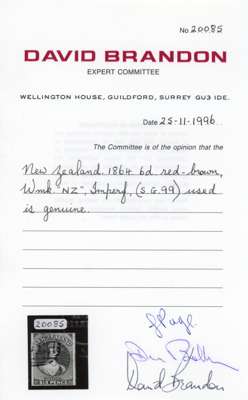 No 20085
DAVID BRANDON
EXPERT COMMITTEE
WELLINGTON HOUSE, GUILDFORD, SURREY GU3 1DE.
Date 25-11-1996
The Committee is of the opinion that the
New Zealand. 1864 6d red-brown,
Wmk. "NZ", Imperf, (S.G.99) used
is genuine.
20085
SIX PENCE
David Brandon